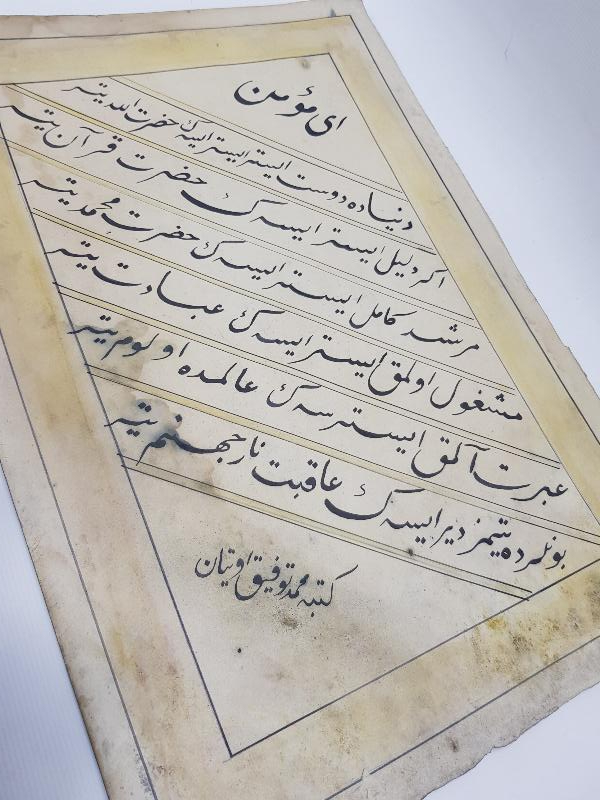 ای مؤمن
دنیاده دوست ایستر ایسه ك حضرت الله یته
اكر دلیل ایستر ایسه ك حضرت قرآن یته
مرشد كامل ایستر ایسه ك حضرت محمد یته
مشغول اولمق ایستر ایسه ك عبادت یته
عبرت آلمق ایسترسه ك عالمده اولوم یته
بونلرده یتیمز دیر ایسه ك عاقبت نار جهنم یته
كتبه محمد توفیق